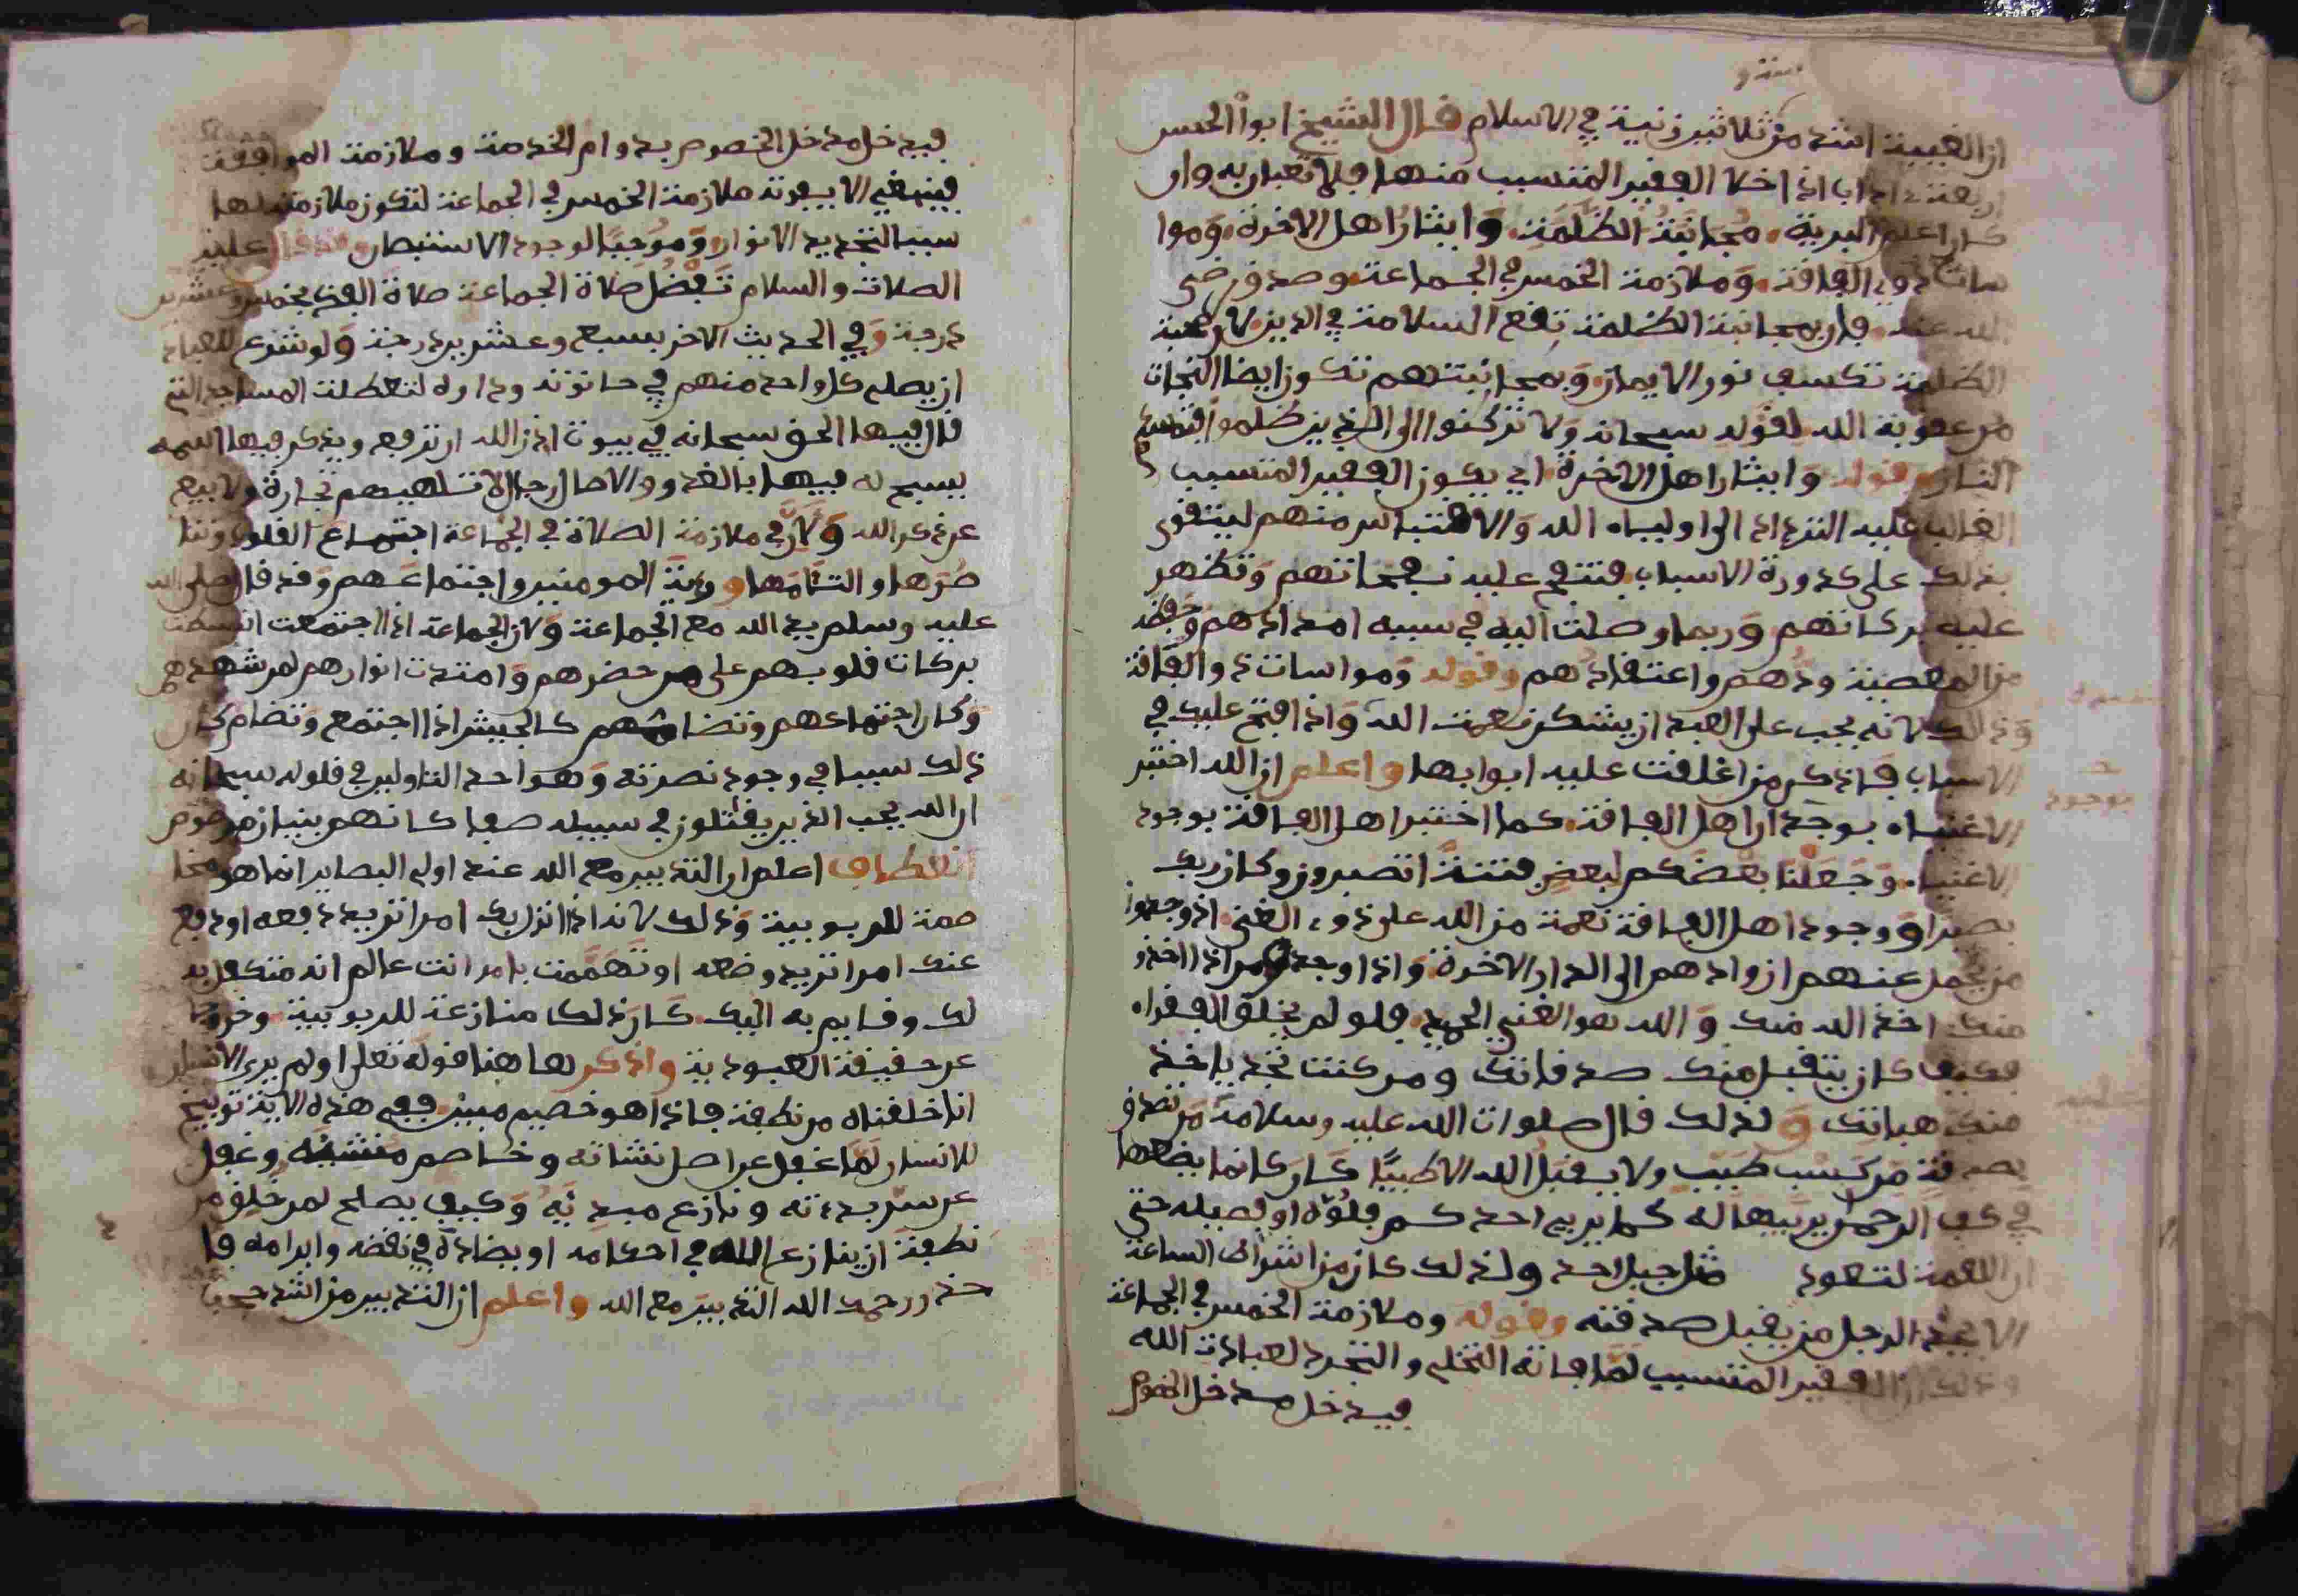 ستة و
ان الغيبة اشد من ثلاثين زنية في الاسلام قال الشيخ ابوا الحسن
اربعة اداب اذا خلا الفقير المتسبب منها فلا تعبان به وان
كان اعلم البرية مجانبة الظلمة وايثار اهل الاخرة وموا
سات ذوي الفاقة وملازمة الخمس في الجماعة وصدق رضي
الله عنه فان بمجانبة الظلمة تقع السلامة في الدين لان صحبة
الظلمة تكسف نور الايمان وبمجانبتهم تكون ايضا النجات
من عقوبة الله لقوله سبحانه ولا تركنوا الى الذين ظلموا فتمسكم
النار وقوله وايثار اهل الاخرة اي يكون الفقير المتسبب
الغالب عليه الترداد الى اولياء الله والاقتباس منهم ليتقوى
بذلك على كدورة الاسباب فتنفح عليه نفحاتهم وتظهر
عليه بركاتهم وربما وصلت اليه في سببه امدادهم وحفظه
من المعصية ودهم واعتقادهم وقوله ومواسات ذو الفاقة
وذلك لانه يجب على العبد ان يشكر نعمت الله واذا فتح عليك في
الاسباب فاذكر من اغلقت عليه ابوابها واعلم ان الله اختبر
الاغنياء بوجد اراهل الفاقة كما اختبر اهل الفاقة بوجود
الاغنياء وجعلنا بعضكم لبعض فتنة اتصبرون وكان ربك
بصيرا ووجود اهل الفاقة نعمة من الله على ذوي الغنى اذ وجدوا
من يحمل عنهم ازوادهم الى الدار الاخرة واذا وجدوا من اذا اخذ
منك اخذ الله منك والله هو الغني الحميد فلو لم يخلق الفقراء
فكيف كان يتقبل منك صدقاتك ومن كنت تجد ياخذ
منك هباتك ولذلك قال صلوات الله عليه وسلامه من تصدق
بصدقة من كسب طيب ولا يقبل الله الا طيبا كان كانما يضعها
في كف الرحمن يربيها له كما يربي احدكم فلوه او فصيله حتى
ان اللقمة لتعود مثل جبل احد ولذلك كان من اشراط الساعة
الا يجد الرجل من يقبل صدقته وقوله وملازمة الخمس في الجماعة
وذلك ان الفقير المتسبب لما فاته التخلي والتجرد لعبادت الله
فيدخل مدخل الخصوص
فيدخل مدخل الخصوص بدوام الخدمة وملازمة الموافقة
فينبغي الا يفوته ملازمة الخمس في الجماعة لتكون ملازمته لها
سببا لتجديد الانوار وموجبا لوجود الاستبصار وقد قال عليه
الصلاة والسلام تفضل صلاة الجماعة صلاة الفذ بخمس وعشرين
درجة وفي الحديث الاخر بسبع وعشرين درجة ولو شرع للعباد
ان يصلي كل واحد منهم في حانوته وداره لتعطلت المساجد التي
قال فيها الحق سبحانه في بيوت اذن الله ان ترفع ويذكر فيها اسمه
يسبح له فيها بالغدو والاصال رجال لا تلهيهم تجارة ولا بيع
عن ذكر الله ولان في ملازمة الصلاة في الجماعة اجتماع القلوب وتنا
صرها والتئامها ورؤية المومنين واجتماعهم وقد قال صلى الله
عليه وسلم يد الله مع الجماعة ولان الجماعة اذا اجتمعت انبسطت
بركات قلوبهم على من حضرهم وامتدت انوارهم لمن شهدهم
وكان اجتماعهم وتضامهم كالجيش اذا اجتمع وتضام كان
ذلك سببا في وجود نصرته وهو احد التاولين في قوله سبحانه
ان الله يحب الذين يقتلون في سبيله صفا كانهم بنيان مرصوص
انعطاف اعلم ان التدبير مع الله عند اولي البصاير انما هو مخا
صمة للربوبية وذلك لانه اذا انزل بك امرا تريد دفعه او دفع
عنك امرا تريد وضعه او تهممت بامر انت عالم انه متكفل به
لك وقايم به اليك كان ذلك منازعة للربوبية وخروجا
عن حقيقة العبودية واذكر هاهنا قوله تعلى اولم ير الانسان
انا خلقناه من نطفة فاذا هو خصيم مبين ففي هذه الاية توبيخ
للانسان لما غفل عن اصل نشاته وخاصم منشيه وغفل
عن سر بدءته ونازع مبديه وكيف يصلح لمن خلق من
نطفة ان ينازع الله في احكامه او يضاده في نقضه وابرامه فا
حذر رحمك الله التدبير مع الله واعلم ان التدبير من اشد حجب